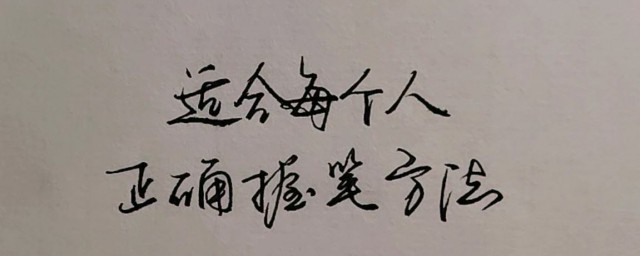 适合每个人
正确握笔方法